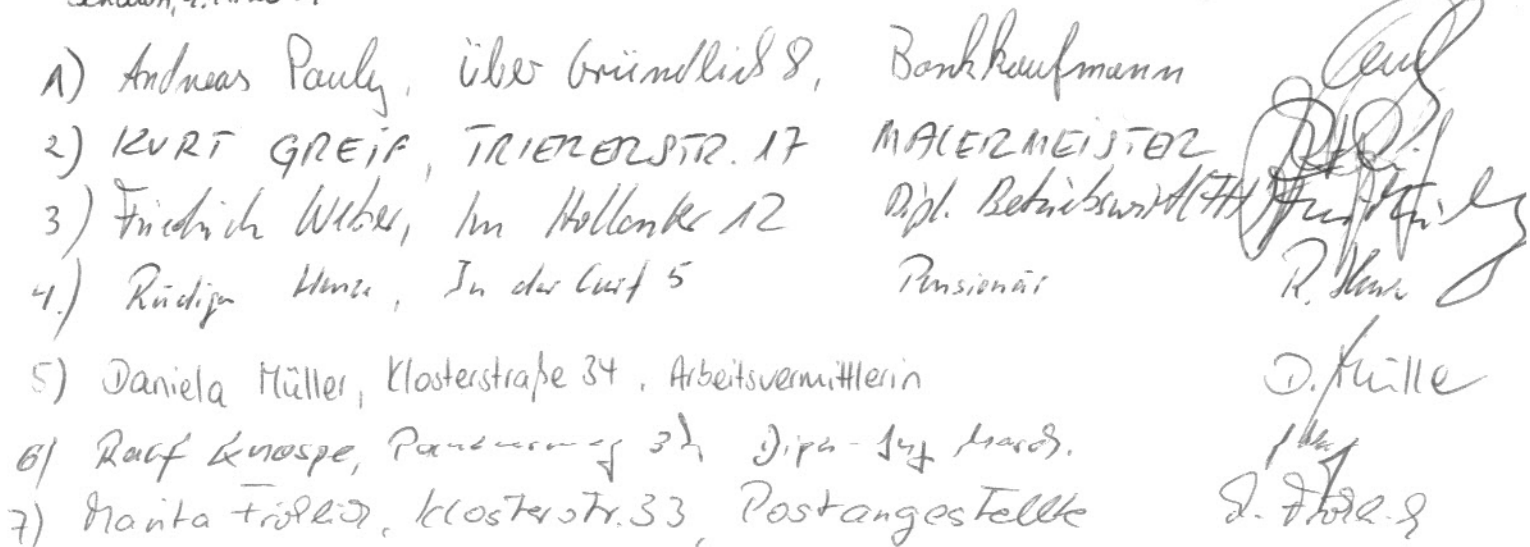 1) Andreas Pauly, über Gründlich 8, Bankkaufmann
2) KURT GREIF, TRIERERSTR. 17 MALERMEISTER
3) Friedrich Weber, Im 12 Dipl. Betriebswirt (FH)
4.) Rüdiger In der 5 Pensionär R.
5) Daniela Müller, Klosterstraße 34, Arbeitsvermittlerin D. Müller
6) Ralf Knospe, Dipl-Ing Masch.
7) Marita Fröhlich, Klosterstr. 33, Postangestellte